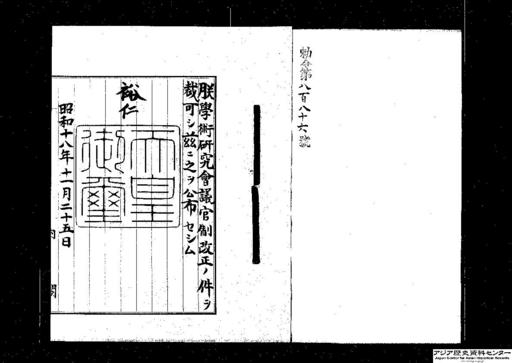 勅令第八百八十六號
朕學術硏究會議官制改正ノ件ヲ
裁可シ茲ニ之ヲ公布セシム
裕仁
天皇御璽
昭和十八年十一月二十五日
内閣
アジア歴史資料センター
Japan Center for Asian Historical Records